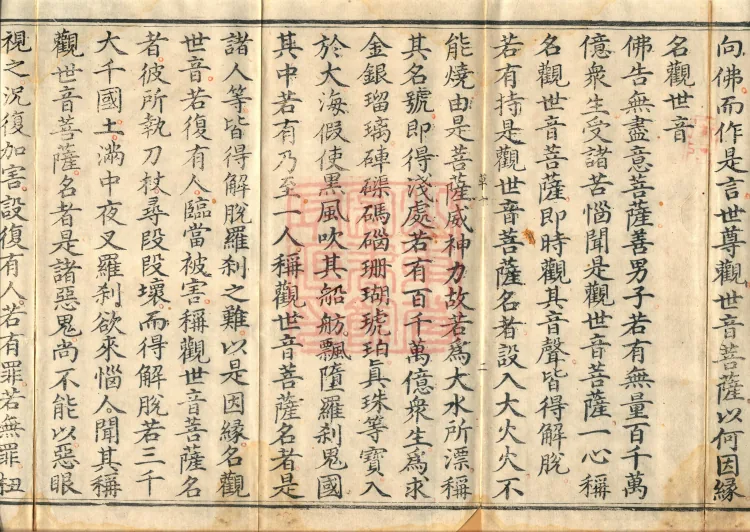 向佛而作是言世尊觀世音菩薩以何因緣
名觀世音
佛告無盡意菩薩善男子若有無量百千萬
億衆生受諸苦惱聞是觀世音菩薩一心稱
名觀世音菩薩即時觀其音聲皆得解脫
若有持是觀世音菩薩名者設入大火火不
能燒由是菩薩威神力故若爲大水所漂稱
其名號即得淺處若有百千萬億衆生爲求
金銀瑠璃硨磲碼碯珊瑚琥珀真珠等寶入
於大海假使黑風吹其船舫飄墮羅刹鬼國
其中若有乃至一人稱觀世音菩薩名者是
諸人等皆得解脫羅刹之難以是因緣名觀
世音若復有人臨當被害稱觀世音菩薩名
者彼所執刀杖尋段段壞而得解脫若三千
大千國土滿中夜叉羅刹欲來惱人聞其稱
觀世音菩薩名者是諸惡鬼尚不能以惡眼
視之況復加害設復有人若有罪若無罪杻